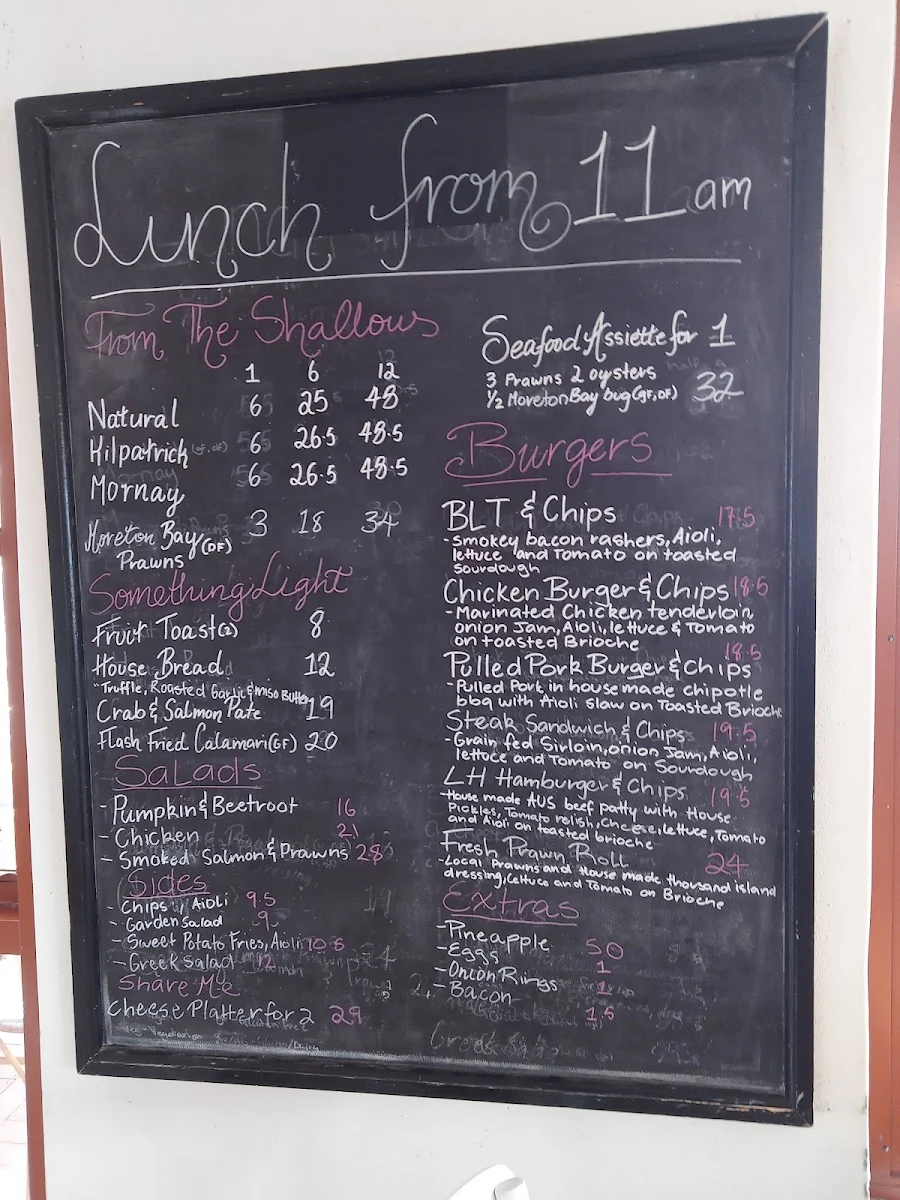 Lunch from 11 am
From The Shallows
1 6 12
Natural 6 25 48
Kilpatrick (GF,DF) 6 26.5 48.5
Mornay 6 26.5 48.5
Moreton Bay (DF) 3 18 34
Prawns
Something Light
Fruit Toast(2) 8
House Bread 12
"Truffle, Roasted Garlic & miso Butter
Crab & Salmon Pate 19
Flash Fried Calamari(GF) 20
Salads
- Pumpkin & Beetroot 16
- Chicken 21
- Smoked Salmon & Prawns 28
Sides
- Chips / Aioli 9.5
- Garden Salad 9
- Sweet Potato Fries, Aioli 10.5
- Greek Salad 12
Share Me
Cheese Platter for 2 29
Seafood Assiette for 1
3 Prawns 2 oysters
1/2 Moreton Bay bug (GF,DF) 32
Burgers
BLT & Chips 17.5
- Smokey bacon rashers, Aioli,
lettuce and Tomato on toasted
Sourdough
Chicken Burger & Chips 18.5
- Marinated Chicken tenderloin,
onion Jam, Aioli, lettuce & Tomato
on toasted Brioche
18.5
Pulled Pork Burger & Chips
- Pulled Pork in house made chipotle
bbq with Aioli slaw on Toasted Brioche
Steak Sandwich & Chips 19.5
- Grain fed Sirloin, onion Jam, Aioli,
lettuce and Tomato on Sourdough
LH Hamburger & Chips 19.5
- House made AUS beef patty with House
Pickles, Tomato relish, Cheese, lettuce, Tomato
and Aioli on toasted brioche
Fresh Prawn Roll 24
- Local Prawns and House made thousand island
dressing, Lettuce and Tomato on Brioche
Extras
- Pineapple 50
- Eggs 1
- Onion Rings 1
- Bacon 1.5